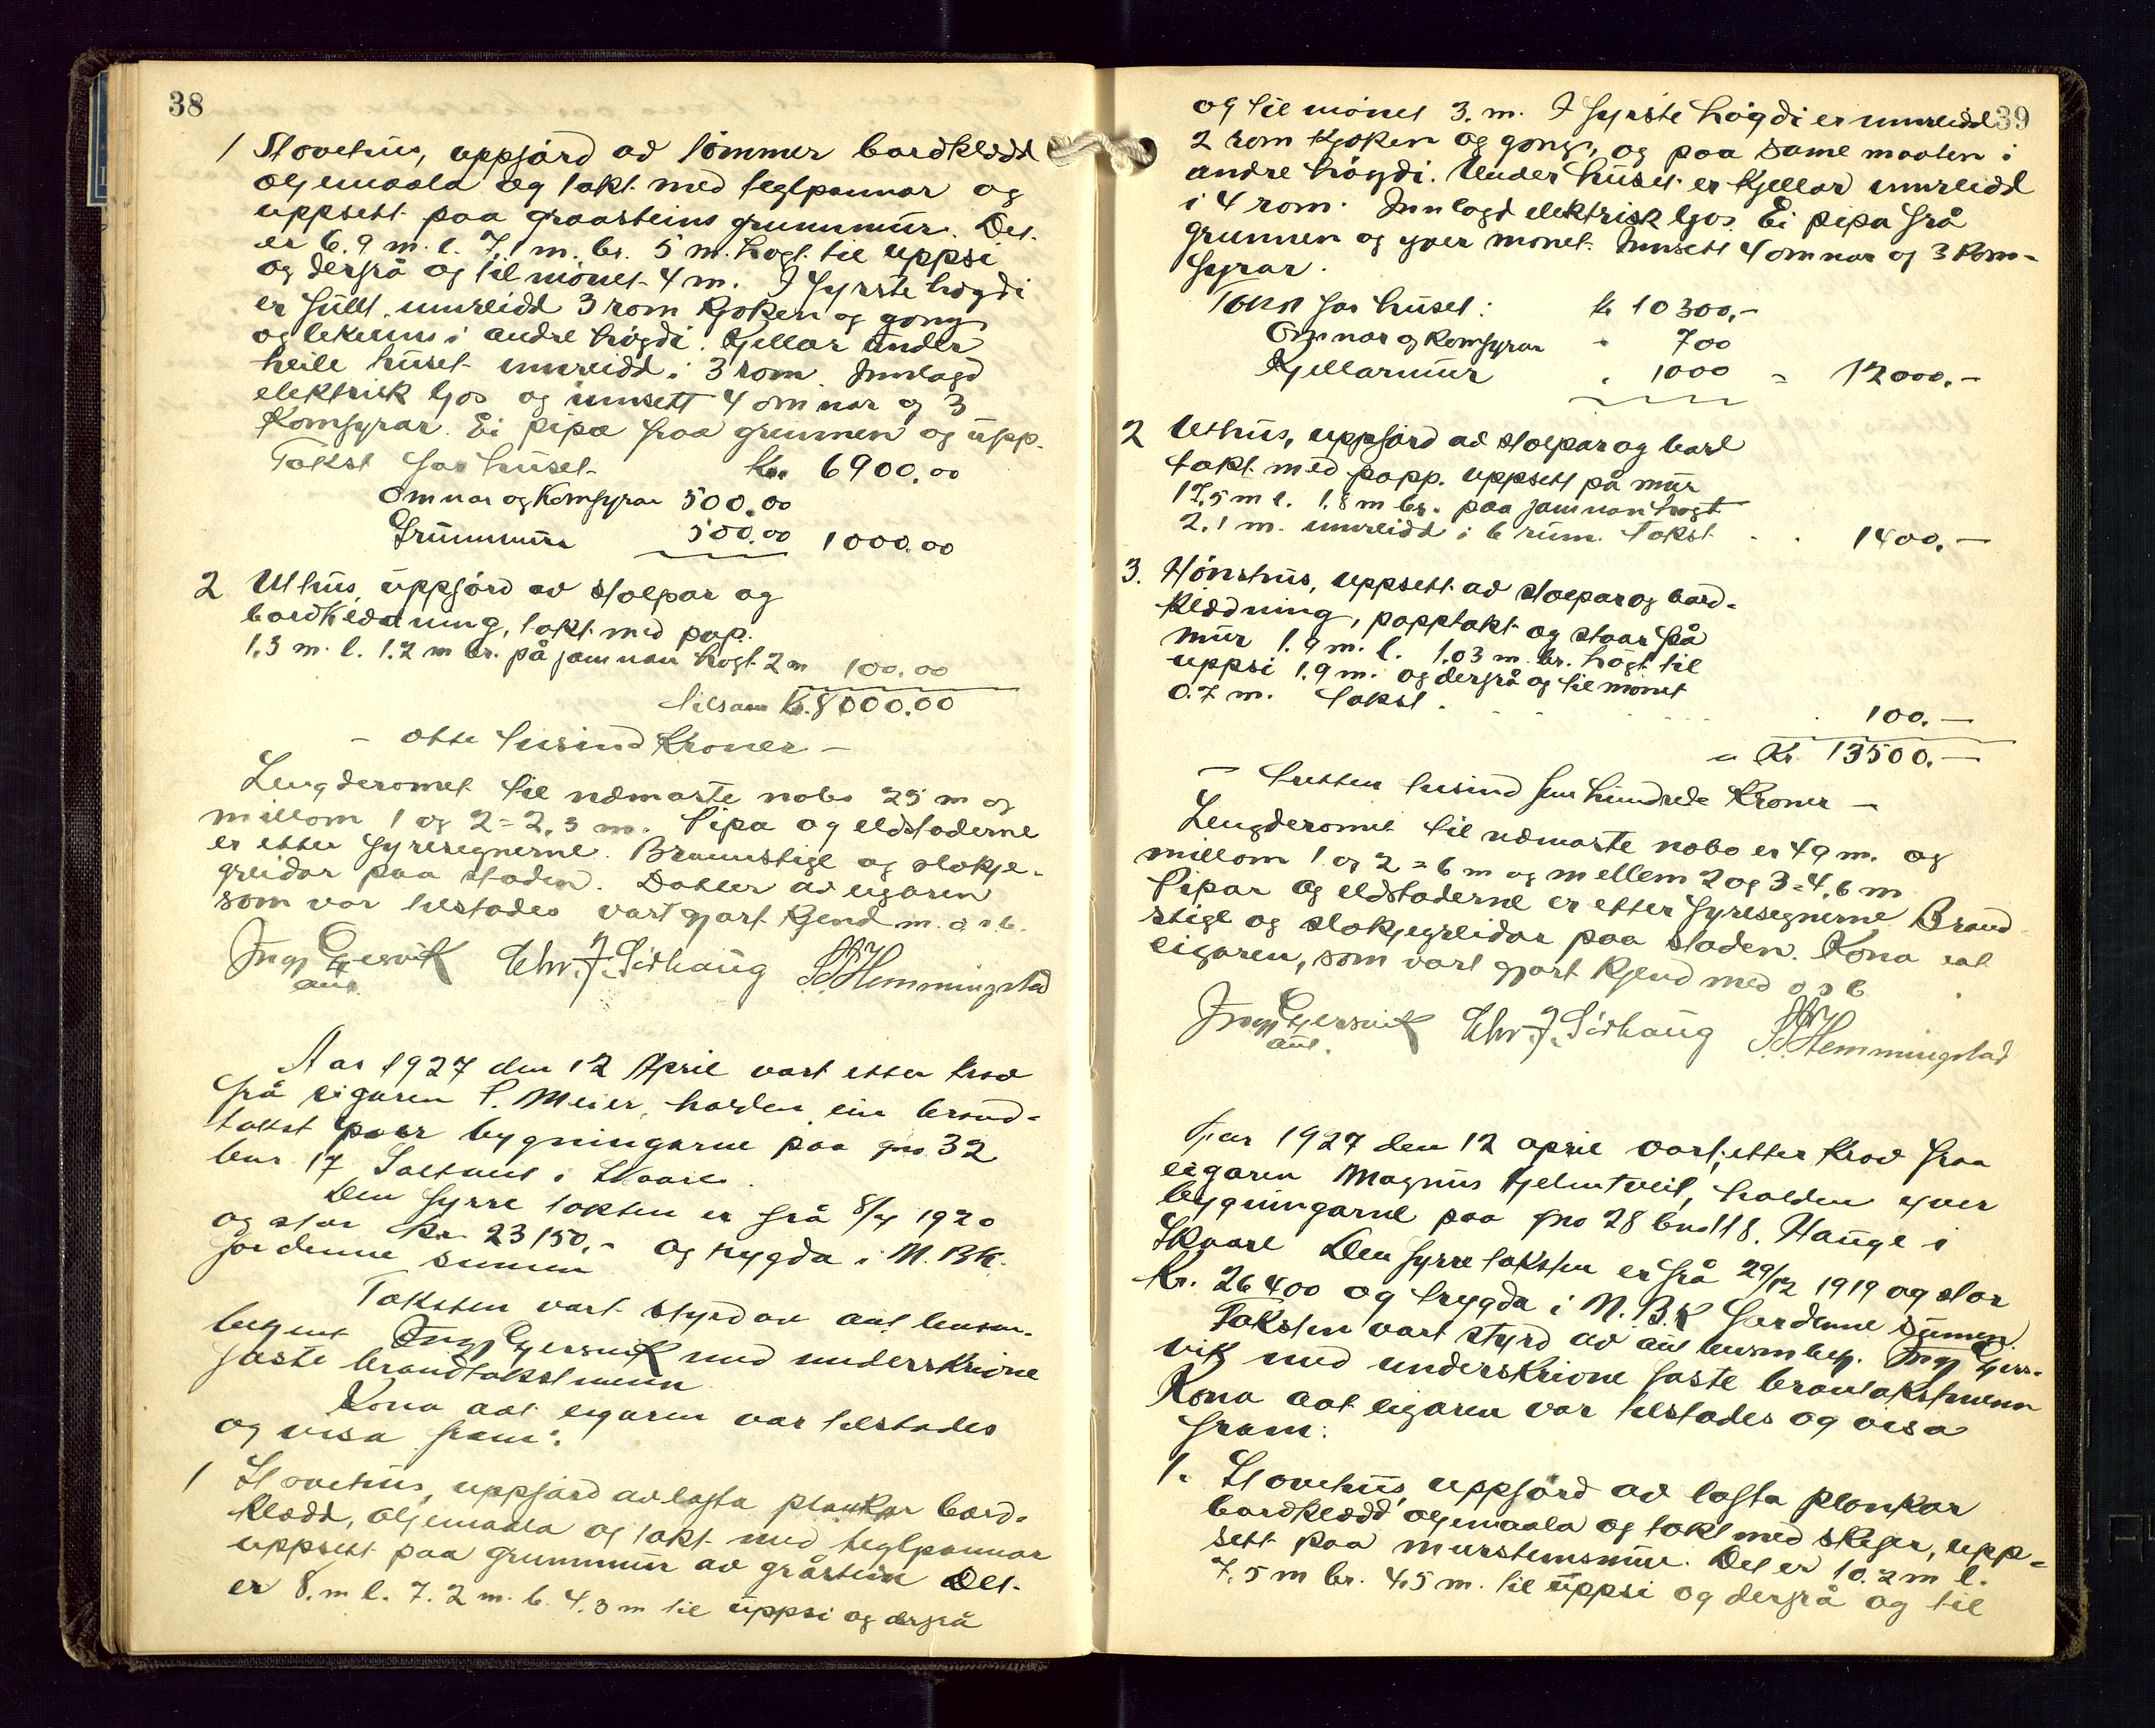 38
1 Stovehus, uppførd av tømmer bordklædd
oljemaala og takt med teglpannar og
uppsett paa graasteins grunnmur. Det
er 6.9 m. l. 7,1 m. br. 5 m. høgt til uppsi
og derfrå og til mønet 4 m. I fyrste høgdi
er fullt innreidd 3 rom kjøken og gong
og likeens i andre høgdi. Kjellar under
heile huset innreidd i 3 rom. Innlagd
elektrisk ljos og innsett 4 omnar og 3
Komfyrar. Ei pipa fraa grunnen og upp.
Takst for huset Kr. 6900.00
Omnar og Komfyrar 500.00
Grunnmur 500.00 1000.00
2 Uthus, uppførd av stolpar og
bordklædning, takt med pap.
1.3 m. l. 1.2 m br. på jamnan høgt 2 m 100.00
tilsam Kr. 8000.00
- otte tusind Kroner -
Lengderomet til næmaste nabo 25 m og
millom 1 og 2 = 2,3 m. Pipa og eldstaderne
er etter fyresegnerne. Brannstige og slokje-
greidar paa staden. Dotter av eigaren
som var tilstades vart gjort kjend m. o s b.
Ingv Gjersvik Chr. J. Sørhaug S. S. Hemmingstad
aut.
Aar 1927 den 12 April vart etter krav
frå eigaren P. Meier, halden ein brand-
takst paar bygningarne paa gno 32
bnr 17 Saltnes i Skaare.
Den fyrre taksten er frå 8/4 1920
og stor Kr 23150.- og trygda i N. BK.
for denne summen
Taksten vart styrd av aut lensm.
betjent Ingv Gjersvik med underskrivne
faste brandtakstmenn
Kona aat eigaren var tilstades
og visa fram:
1 Stovehus, uppførd av lafta plankar bord-
klædd, oljemaala og takt med teglpannar
uppsett paa grunnmur av gråstein Det
er 8. m l. 7.2 m. b. 4.3 m til uppsi og derfrå
39
og til mønet 3. m. I fyrste høgdi er innreidd
2 rom kjøken og gong, og paa same maaten i
andre høgdi. Under huset er kjellar innreidd
i 4 rom. Innlagd elektrisk ljos. Ei pipa frå
grunnen og yver mønet. Innsett 4 omnar og 3 kom-
fyrar.
Takst for huset: kr 10300,-
Omnar og komfyrar " 700
Kjellarmur " 1000 = 12000.-
2 Uthus, uppførd av stolpar og bord
takt med papp. uppsett på mur
17,5 m l. 1.8 m br. paa jamnan høgt
2.1 m. innreidd i 6 rum. Takst . . 1400.-
3. Hønshus, uppsett av stolpar og bord-
klædning, papptakt og staar på
mur 1.9 m. l. 1.03 m. br. høgt til
uppsi 1.9 m. og derfrå og til mønet
0.7 m. takst . 100.-
" Kr 13500.-
- tretten tusind fem hundrede Kroner -
Lengderomet til næmaste nabo er 49 m. og
millom 1 og 2 = 6 m og mellem 2 og 3 = 4,6 m
Pipar og eldstaderne er etter fyresegnerne. Brand
stige og slokjegreidar paa staden. Kona aat
eigaren, som vart gjort kjend med o s b
Ingv Gjersvik Chr. J. Sørhaug S. S. Hemmingstad
aut.
Aar 1927 den 12 april vart, etter krav fraa
eigaren Magnus Hjelmtveit, halden yver
bygningarne paa gno 28 bno 118. Hauge i
Skaare Den fyrre taksten er frå 29/12 1919 og stor
Kr. 26400 og trygda i N. B.K for denne sumen
Taksten vart styrd av aut lensm betj. Ingv Gjers-
vik med underskrivne faste brantakstmenn
Kona aat eigaren var tilstades og visa
fram:
1. Stovehus, uppførd av lafta plankar
bordklædd oljemaala og takt med skifer, upp-
sett paa murstensmur. Det er 10.2 m l.
7.5 m br. 4,5 m. til uppsi og derfrå og til